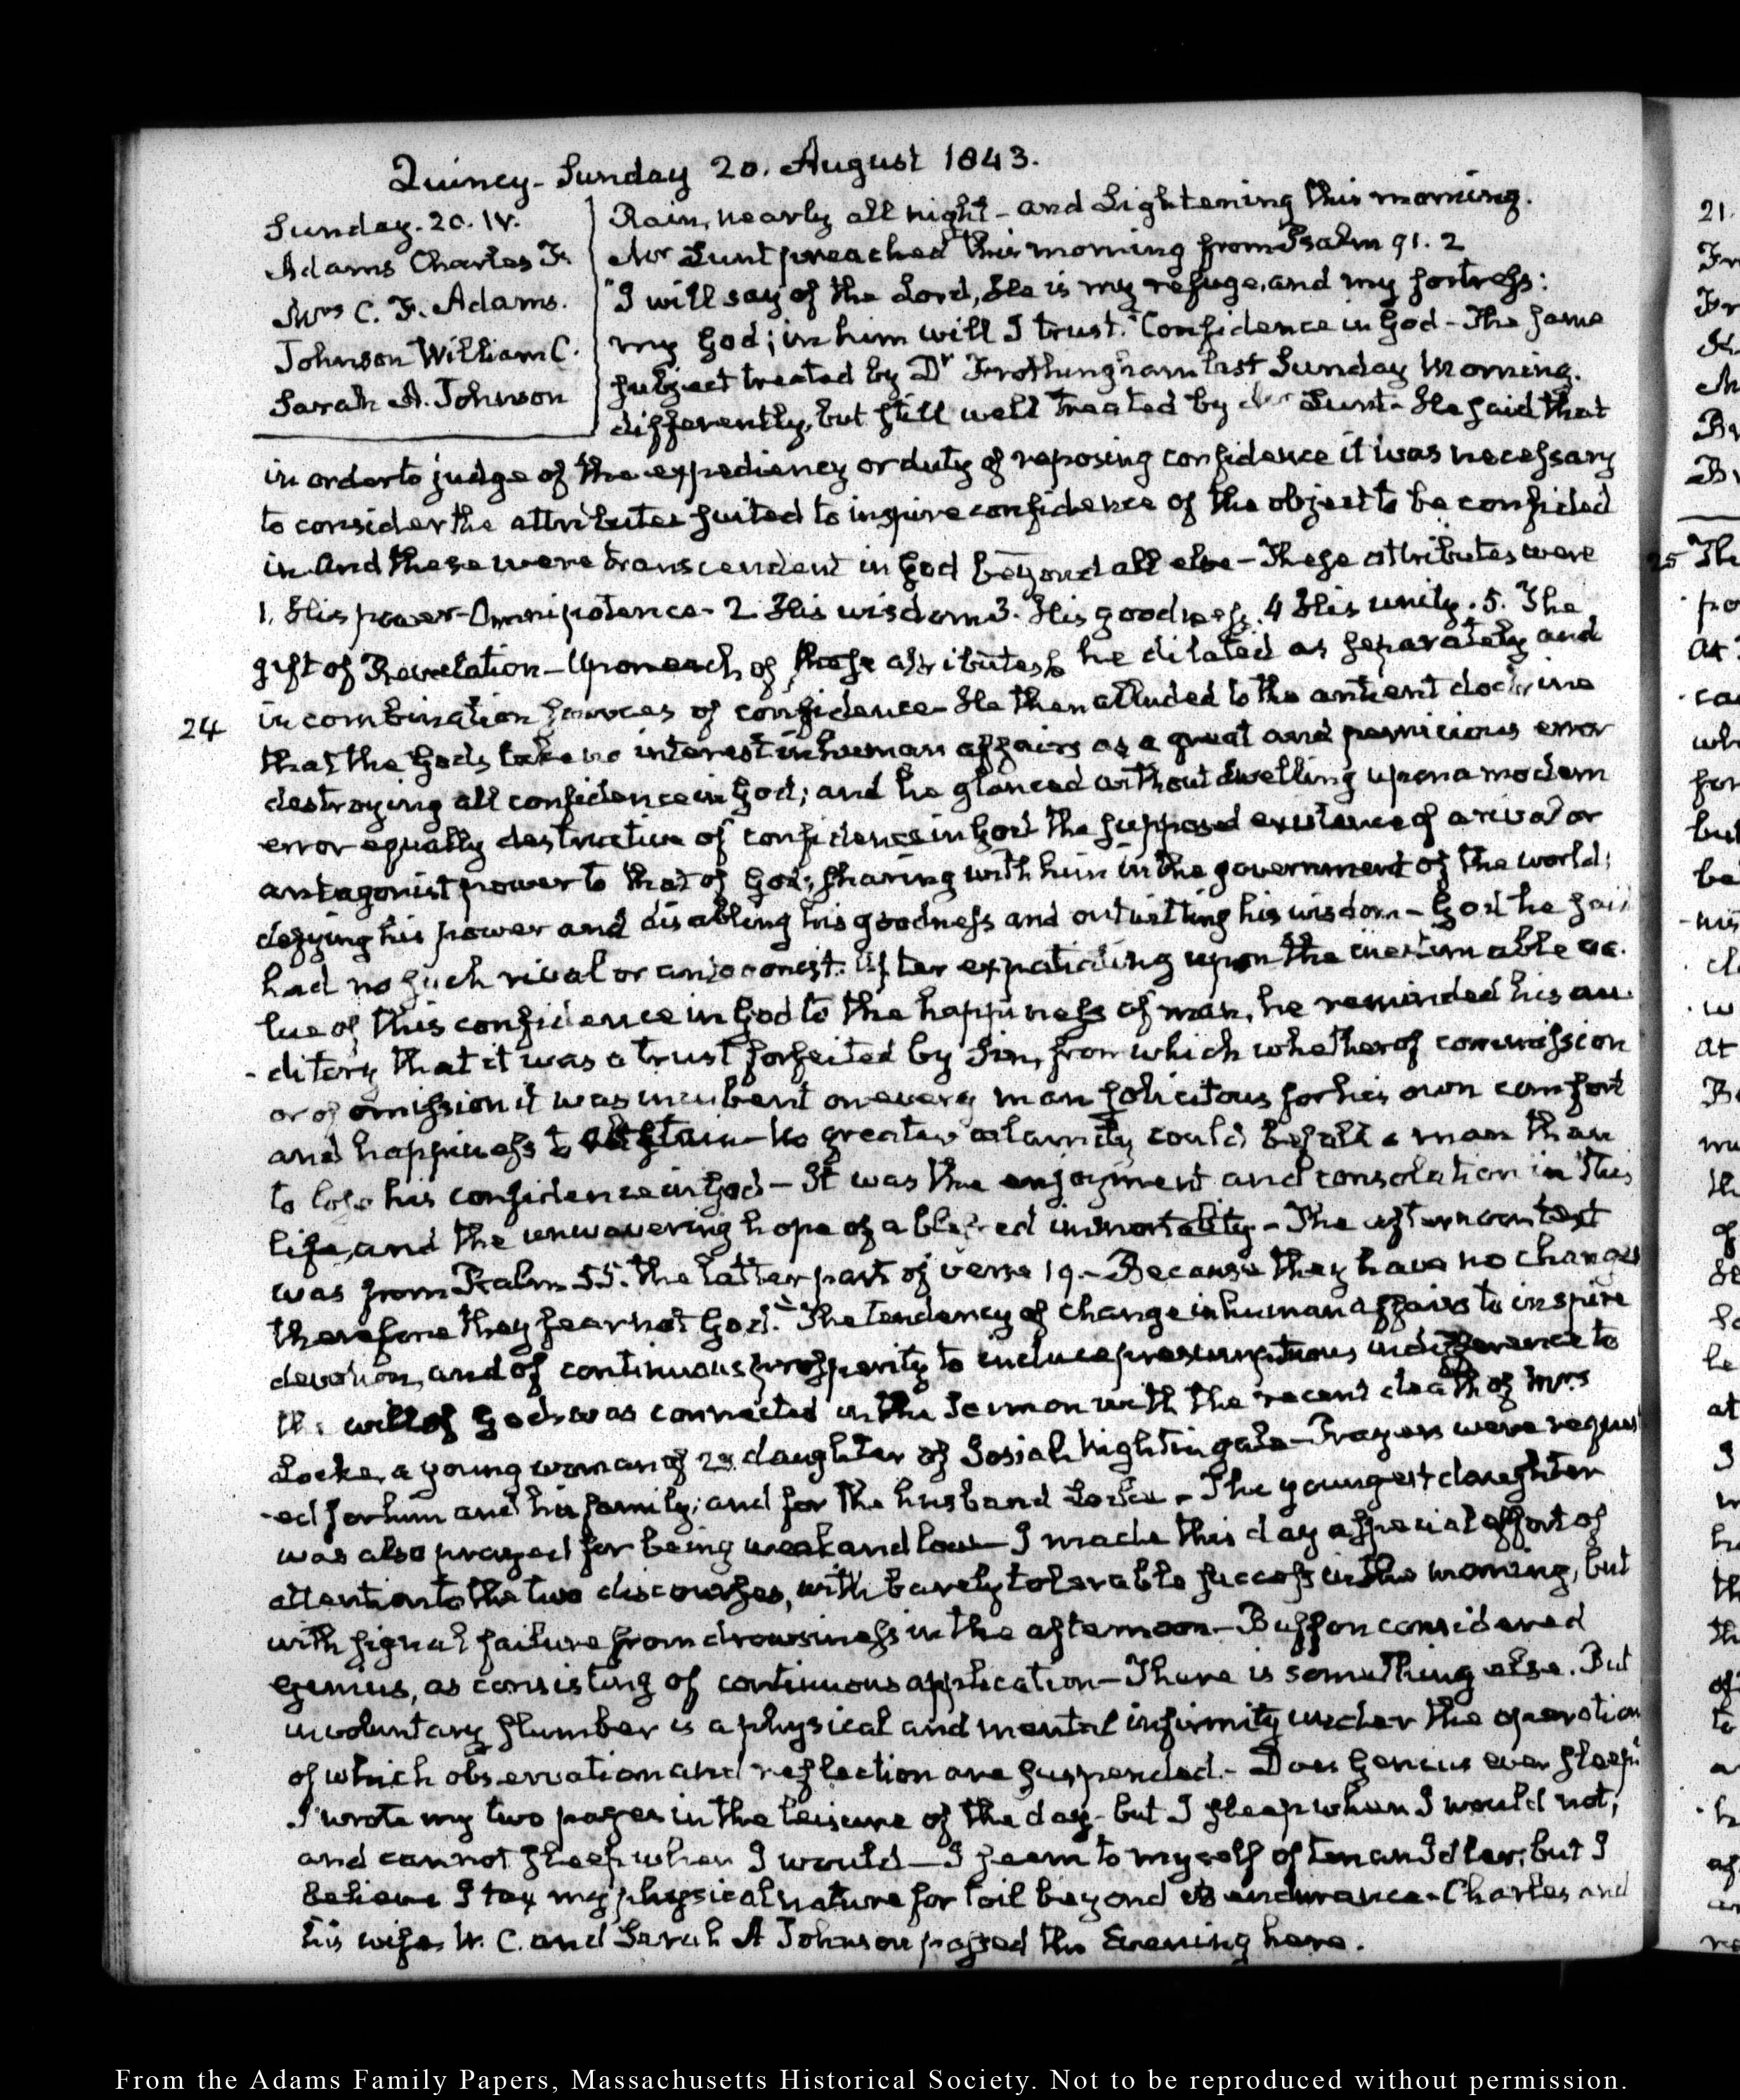 Quincy - Sunday 20. August 1843.
Sunday. 20. IV.
Adams Charles F.
Mrs C. F. Adams.
Johnson William C.
Sarah A. Johnson
Rain, nearly all night - and Lightening this morning.
Mr Lunt preached this morning from Psalm 91. 2
"I will say of the Lord, He is my refuge, and my fortress:
my God; in him will I trust." Confidence in God - The same
subject treated by Dr Frothingham last Sunday Morning.
differently, but still well treated by Mr Lunt - He said that
in order to judge of the expediency or duty of reposing confidence it was necessary
to consider the attributes suited to inspire confidence of the object to be confided
in and these were transcendent in God beyond all else - These attributes were
1. His power - Omnipotence - 2. His wisdom 3. His goodness. 4 His unity. 5. The
gift of Revelation - Upon each of these attributes he dilated as separately and
24
in combination sources of confidence - He then alluded to the antient doctrine
that the Gods take no interest in human affairs as a great and pernicious error
destroying all confidence in God; and he glanced without dwelling upon a modern
error equally destructive of confidence in God the supposed existence of a rival or
antagonist power to that of God; sharing with him in the government of the world;
defying his power and disabling his goodness and outwitting his wisdom - God he said
had no such rival or antagonist. After expatiating upon the inestimable va-
lue of this confidence in God to the happiness of man, he reminded his au-
-ditory that it was a trust forfeited by Sin, from which whether of commission
or of omission it was incumbent on every man solicitous for his own comfort
and happiness to abstain - No greater calamity could befall a man than
to lose his confidence in God - It was the enjoyment and consolation in this
life, and the unwavering hope of a blessed immortality - The afternoon text
was from Psalm 55. the latter part of verse 19. - Because they have no changes
therefore they fear not God." The tendency of change in human affairs to inspire
devotion, and of continuous prosperity to induce presumptuous indifference to
the will of God was connected in the Sermon with the recent death of Mrs
Locke, a young woman of 23 daughter of Josiah Nightingale - Prayers were request
-ed for him and his family; and for the husband Locke - The youngest daughter
was also prayed for being weak and low - I made this day a special effort of
attention to the two discourses, with barely tolerable success in the morning, but
with signal failure from drowsiness in the afternoon - Buffon considered
Genius, as consisting of continuous application - There is something else. But
involuntary slumber is a physical and mental infirmity under the operation
of which observation and reflection are suspended. - Does Genius ever sleep?
I wrote my two pages in the leisure of the day - but I sleep when I would not,
and cannot sleep when I would - I seem to myself often an Idler; but I
believe I tax my physical nature for toil beyond its endurance - Charles and
his wife, W. C. and Sarah A Johnson passed the Evening here.
From the Adams Family Papers, Massachusetts Historical Society. Not to be reproduced without permission.